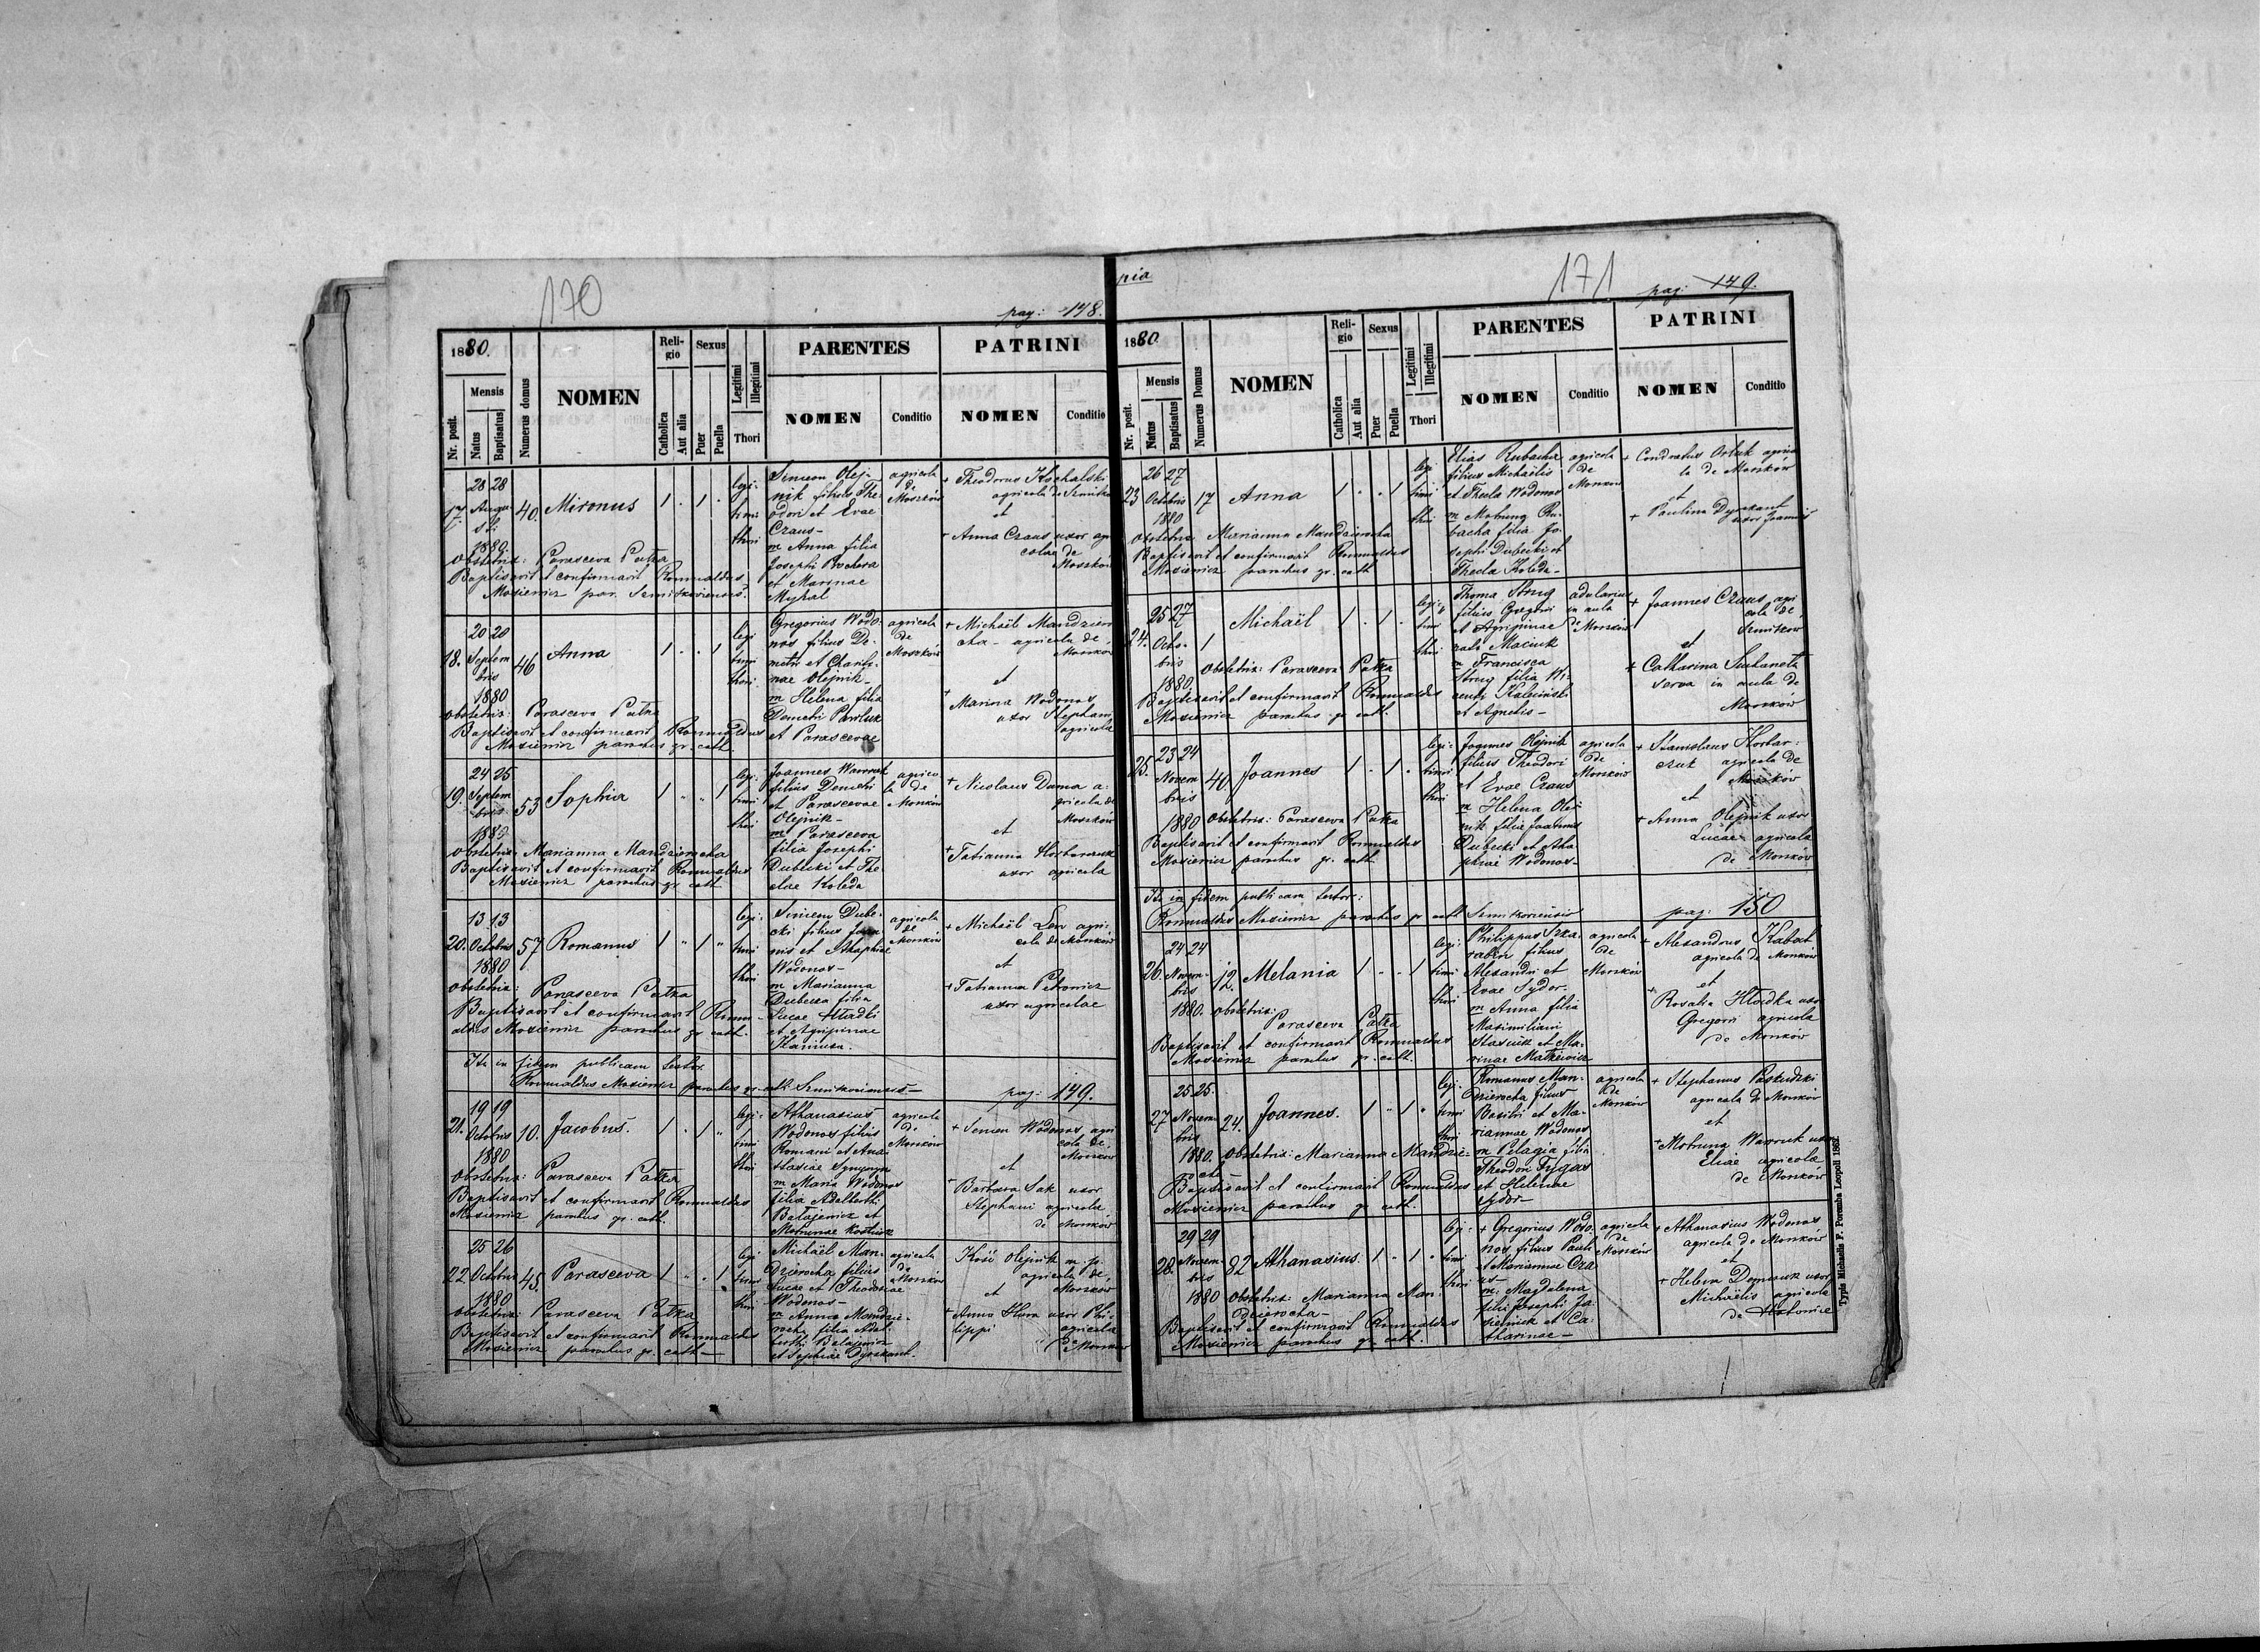 170
pag: 148.
1880.
Nr. posit.
Mensis
Natus
Baptisatus
Numerus domus
NOMEN
Religio
Catholica
Aut alia
Sexus
Puer
Puella
Legitimi
Illegitimi
Thori
PARENTES
NOMEN
Conditio
PATRINI
NOMEN
Conditio
17.
28 28
Augusti
1880.
40.
Mironus
1 . 1 .
legitimi thori
Simeon Olej-
nik filius The-
odori et Evae
Craus-
m Anna filia
Josephi Prochera
et Marinae
Myhal
agricola
de
Moszków
+ Theodorus
agricola de
et
+ Anna Craus uxor agri
colae de
Moszków
obstetrix: Parasceva Patka
Baptisavit et confirmavit Romualdus
Mosiewicz par. Szmitkoviensis.
18.
20 20
Septem
bris
1880
46
Anna
1 . . 1
legitimi thori
Gregorius Wodo-
nos filius De-
metri et
Olejnik-
m Helena filia
Demetri Pawluk
et Parascevae
agricola
de
Moszków
+ Michaël Mandziero
cha - agricola de
Moszków
et
+ Marina Wodonos
uxor Stephani
agricola
obstetrix: Parasceva Patka
Baptisavit et confirmavit Romualdus
Mosiewicz parochus gr. cath.
19.
24 25
Septem
bris
1880
53
Sophia
1 " " 1
legitimi thori
Joannes Wawruk
filius Demetri
et Parascevae
Olejnik-
m Parasceva
filia Josephi
Dubecki et The-
clae Koleda
agrico-
la de
Moszków
+ Nicolaus Duma a-
gricola de
Moszków
et
+ Tatianna Horbaczuk
uxor agricola
obstetrix: Marianna Mandzierocha
Baptisavit et confirmavit Romualdus
Mosiewicz parochus gr. cath.
20.
13 13
Octobris
1880
57
Romanus
1 " 1 "
legi-
timi
thori
Simeon Dube-
cki filius Joan
nis et Ahaphiae
Wodonos-
m Marianna
Dubecka filia
Lucae Hladki
et Agripinae
Haniuca.
agricola
de
Moszków
+ Michaël Len agri-
cola de Moszków
et
+ Tatianna Petrowicz
uxor agricolae
obstetrix: Parasceva Patka
Baptisavit et confirmavit Romu-
aldus Mosiewicz parochus gr. cath.
Ita in fidem publicam testor
Romualdus Mosiewicz parochus gr. cath. Szmitkoviensis-
pag: 149.
21.
19 19
Octobris
1880
10.
Jacobus.
1 . 1 "
legi-
timi
thori
Athanasius
Wodonos filius
Romani et Ana-
stasiae Synyuga
m Maria Wodonos
filia Adalberti
Bałajewicz et
Motrinae Kostiuk
agricola
de
Moszków
+ Semen Wodonos agri
cola de
Moszków
et
+ Barbara Sak uxor
Stephani agricola
de Moszków
obstetrix: Parasceva Patka
Baptisavit et confirmavit Romualdus
Mosiewicz parochus gr. cath.
22
25 26
Octobris
1880
45.
Parasceva
1 " . 1
legi-
timi
thori
Michaël Man-
dzierocha filius
Lucae et Theodosiae
Wodonos-
m Anna Mandzie-
rocha filia Adal-
berti Bałajewicz
et Sophiae Dyszkant.
agricola
de
Moszków
Kość Olejnik m. p.
agricola de
Moszków
et
+ Anna Hora uxor Phi-
lippi agricola
de Moszków
obstetrix: Parasceva Patka
Baptisavit et confirmavit Romualdus
Mosiewicz parochus gr. cath-
pia
171
pag: 149.
1880.
Nr. posit.
Mensis
Natus
Baptisatus
Numerus Domus
NOMEN
Religio
Catholica
Aut alia
Sexus
Puer
Puella
Legitimi
Illegitimi
Thori
PARENTES
NOMEN
Conditio
PATRINI
NOMEN
Conditio
23
26 27
Octobris
1880
17
Anna
1 . . 1
legi-
timi
thori
Elias Rubacha
filius Michaëlis
et Thecla Wodonos
m Motruna Ru-
bacha filia Jo-
sephi Dubecki et
Thecla Koleda-
agricola
de
Moszków
+ Condratus Orluk agrico
la de Moszków
et
+ Paulina Dyszkant
uxor Joannis
obstetrix Marianna Mandzierocha
Baptisavit et confirmavit Romualdus
Mosiewicz parochus gr. cath.
24.
25 27
Octo-
bris
1880.
1
Michaël
1 . 1 .
legi-
timi
thori
Thoma Strug
filius Gregorii
et Agripinae
m Francisca
Strug filia Vi-
centi Kalciński
et Agnetis-
in aula
de Moszków
+ Joannes Craus agri
cola de
Szmitkow
et
+ Catharina
serva in aula de
Moszków
obstetrix: Parasceva Patka
Baptisavit et confirmavit Romualdus
Mosiewicz parochus gr. cath.
25.
23 24
Novem
bris
1880
40.
Joannes
1 . 1 .
legi-
timi
thori
Joannes Olejnik
filius Theodori
et Evae Craus
m Helena Olej
nik filia Joannis
Dubecki et Aha
phiae Wodonos-
agricola
de
Moszków
+ Stanislaus Horbar-
czuk agricola de
Moszków
et
+ Anna Olejnik uxor
Lucae agricola
de Moszków
obstetrix: Parasceva Patka
Baptisavit et confirmavit Romualdus
Mosiewicz parochus gr. cath.
Ita in fidem publicam testor:
Romualdus Mosiewicz parochus gr. cath Szmitkoviensis
pag: 150
26.
24 24
Novem-
bris
1880.
12.
Melania
1 " . 1
legi-
timi
thori
Philippus Sza-
raben filius
Alexandri et
Evae Sydor-
m Anna filia
Maximiliani
Stasiuk et Ma-
rinae Matkiewicz
agricola
de
Moszków
+ Alexandrus Kabat
agricola de Moszków
et
+ Rosalia Hladka uxor
Gregorii agricola
de Moszków
obstetrix:
Parasceva Patka
Baptisavit et confirmavit Romualdus
Mosiewicz parochus gr. cath.
27
25 25
Novem
bris
1880.
24.
Joannes.
1 " 1 "
legi-
timi
thori
Romanus Man-
dzierocha filius
Basilii et Ma-
riannae Wodonos
m Pelagia filia
Theodori Frygas
et Helenae
Sydor-
agricola
de
Moszków
+ Stephanus Paskudzki
agricola de Moszków
et
+ Motruna Wawruk uxor
Eliae agricola
de Moszków
obstetrix: Marianna Mandzie-
rocha
Baptisavit et confirmavit Romualdus
Mosiewicz parochus gr. cath.
28.
29 29
Novem-
bris
1880
82
Athanasius.
1 " 1 "
legi-
timi
thori
+ Gregorius Wodo-
nos filius Pauli
et Mariannae Cra
us-
m. Magdalena
filia Josephi Ja-
sieniuk et Ca-
tharinae-
agricola
de
Moszków
+ Athanasius Wodonos
agricola de Moszków
et
+ Helena Demczuk uxor
Michaëlis agricola
de
obstetrix: Marianna Man-
dzierocha-
Baptisavit et confirmavit Romualdus
Mosiewicz parochus gr. cath.
Typis Michaelis F. Poremba Leopoli